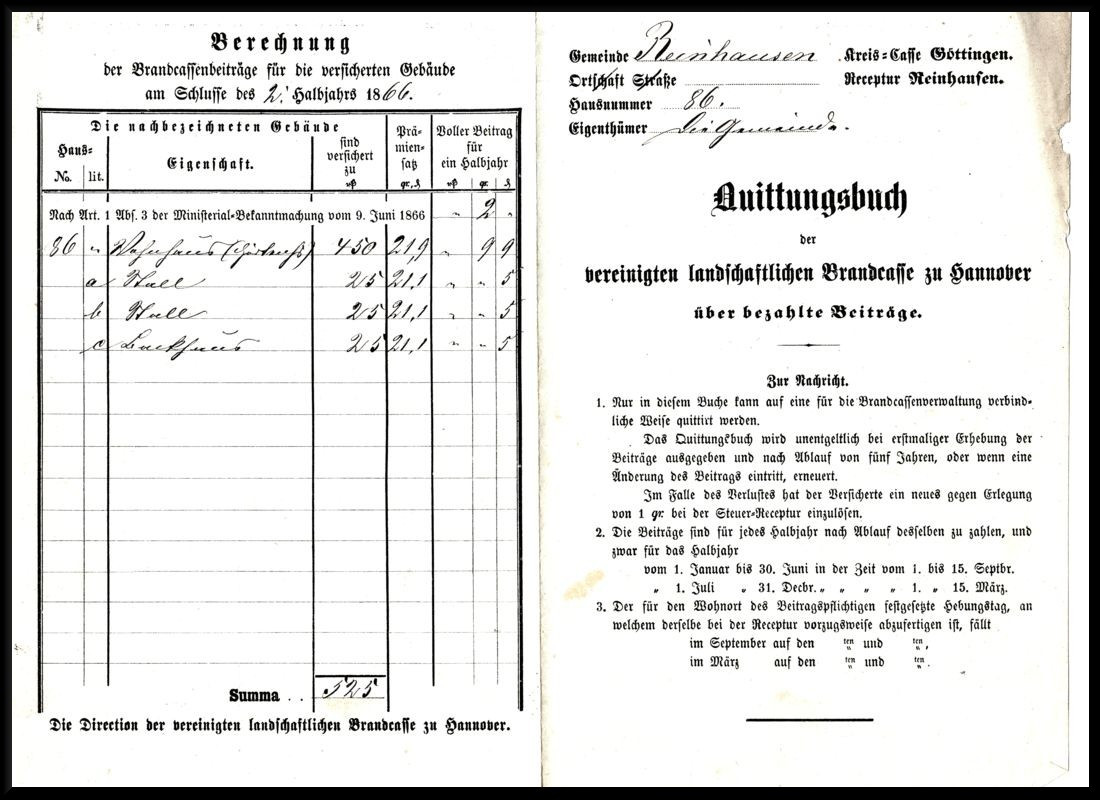 Berechnung
der Brandcassenbeiträge für die versicherten Gebäude
am Schlusse des 2. Halbjahrs 1866.
Die nachbezeichneten Gebäude
Prä-
mien-
satz
Voller Beitrag
für
ein Halbjahr
Haus-
No. lit.
Eigenschaft.
sind
versichert
zu
Nach Art. 1 Abs. 3 der Ministerial-Bekanntmachung vom 9. Juni 1866 " 2 "
86 " Wohnhaus 450 21,9 " 9 9
a Stall 25 21,1 " " 5
b Stall 25 21,1 " " 5
c Backhaus 25 21,1 " " 5
Summa . . 525
Die Direction der vereinigten landschaftlichen Brandcasse zu Hannover.
Gemeinde Reinhausen Kreis-Casse Göttingen.
Ortschaft Straße Receptur Reinhausen.
Hausnummer 86.
Eigenthümer Die Gemeinde.
Quittungsbuch
der
vereinigten landschaftlichen Brandcasse zu Hannover
über bezahlte Beiträge.
Zur Nachricht.
1. Nur in diesem Buche kann auf eine für die Brandcassenverwaltung verbind-
liche Weise quittirt werden.
Das Quittungsbuch wird unentgeltlich bei erstmaliger Erhebung der
Beiträge ausgegeben und nach Ablauf von fünf Jahren, oder wenn eine
Änderung des Beitrags eintritt, erneuert.
Im Falle des Verlustes hat der Versicherte ein neues gegen Erlegung
von 1 gr. bei der Steuer-Receptur einzulösen.
2. Die Beiträge sind für jedes Halbjahr nach Ablauf desselben zu zahlen, und
zwar für das Halbjahr
vom 1. Januar bis 30. Juni in der Zeit vom 1. bis 15. Septbr.
" 1. Juli " 31. Decbr. " " " " 1. " 15. März.
3. Der für den Wohnort des Beitragspflichtigen festgesetzte Hebungstag, an
welchem derselbe bei der Receptur vorzugsweise abzufertigen ist, fällt
im September auf den ten und ten,
im März auf den ten und ten.